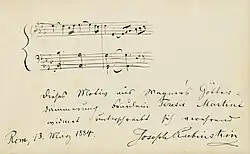 Dieses Motiv aus Wagner's Götter-
dämmerung Fräulein Louise Martini
widmet hochachtend sich
Rom, 13. März 1884.
Joseph Rubinstein